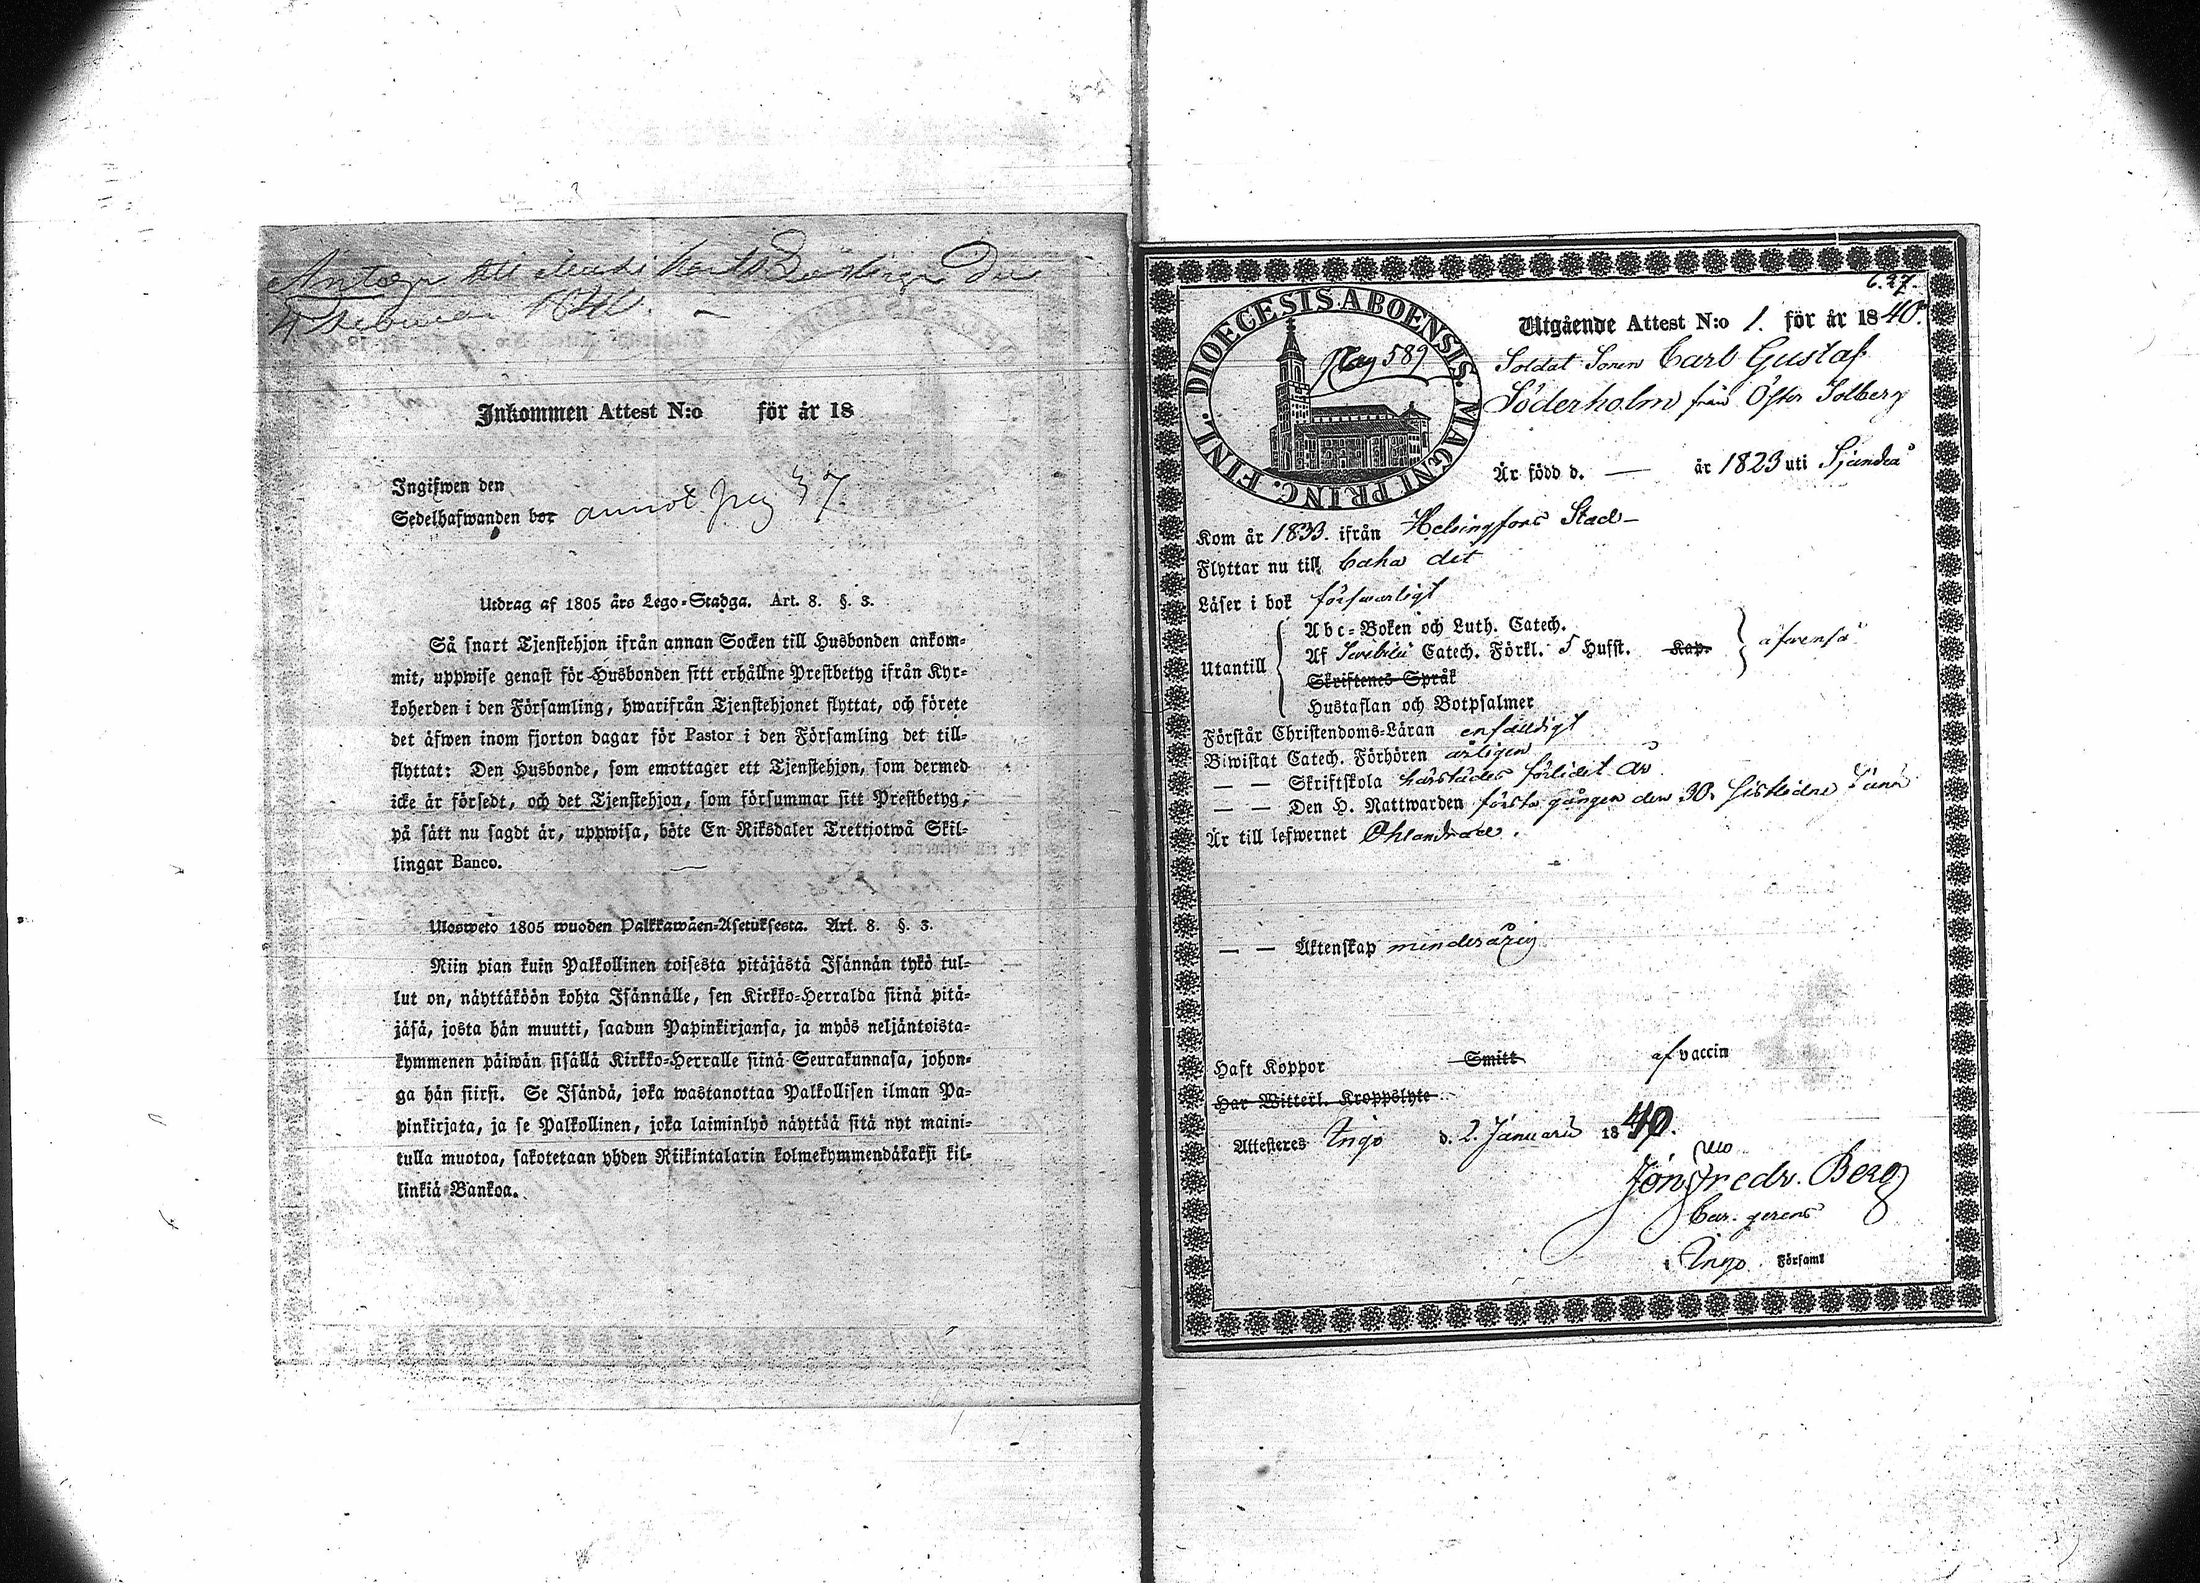 1840.
Inkommen Attest N:o för år 18
Ingifwen den
Sedelhafwanden bor annot. pag 37
Utdrag af 1805 års Lego-Stadga. Art. 8. §. 3.
Så snart Tjenstehjon ifrån annan Socken till Husbonden ankom-
mit, uppwise genast för Husbonden sitt erhållne Prestbetyg ifrån Kyr-
koherden i den Församling, hwarifrån Tjenstehjonet flyttat, och förete
det äfwen inom fjorton dagar för Pastor i den Församling det till-
flyttat: Den Husbonde, som emottager ett Tjenstehjon, som dermed
icke är försedt, och det Tjenstehjon, som försummar sitt Prestbetyg,
på sätt nu sagdt är, uppwisa, böte En Riksdaler Trettjotwå Skil-
lingar Banco.
Ulosweto 1805 wuoden Palkkawäen-Asetuksesta. Art. 8. §. 3.
Niin pian kuin Palkollinen toisesta pitäjästä Isännän tykö tul-
lut on, näyttäköön kohta Isännälle, sen Kirkko-Herralda siinä pitä-
jäsä, josta hän muutti, saadun Papinkirjansa, ja myös neljäntoista-
kymmenen päiwän sisällä Kirkko-Herralle siinä Seurakunnasa, johon-
ga hän siirsi. Se Isändä, joka wastanottaa Palkollisen ilman Pa-
pinkirjata, ja se Palkollinen, joka laiminlyö näyttää sitä nyt maini-
tulla muotoa, sakotetaan yhden Riikintalarin kolmekymmendäkaksi kil-
linkiä Bankoa.
6.27.
DIOECESIS ABOENSIS. MAGNI PRINC. FINL.
Pag 589
Utgående Attest N:o 1. för år 1840.
Soldat Sonen Carl Gustaf
Söderholm från Öster Solberg
Är född d. — år 1823 uti Sjundeå
Kom år 1833. ifrån Helsingfors Stad
Flyttar nu till
Läser i bok försvarligt
Utantill
Abc-Boken och Luth. Catech.
Af Svebilii Catech. Förkl. 5 Hufst. Kap.
Skriftenes Språk
Hustaflan och Botpsalmer
äfvenså
Förstår Christendoms-Läran enfalldigt
Biwistat Catech. Förhören årligen
— — Skriftskola härstädes förlidet år
— — Den H. Nattwarden första gången den 30. sistledne Junii
Är till lefwernet Oklandrad.
— — Äktenskap minderårig
Haft Koppor Smitt af vaccin
Har Witterl. Kroppslyte
Attesteres Ingo d. 2. Januarii 1840.
Jon. Fredr. Berg
Cur. gerens
i Ingo Församl